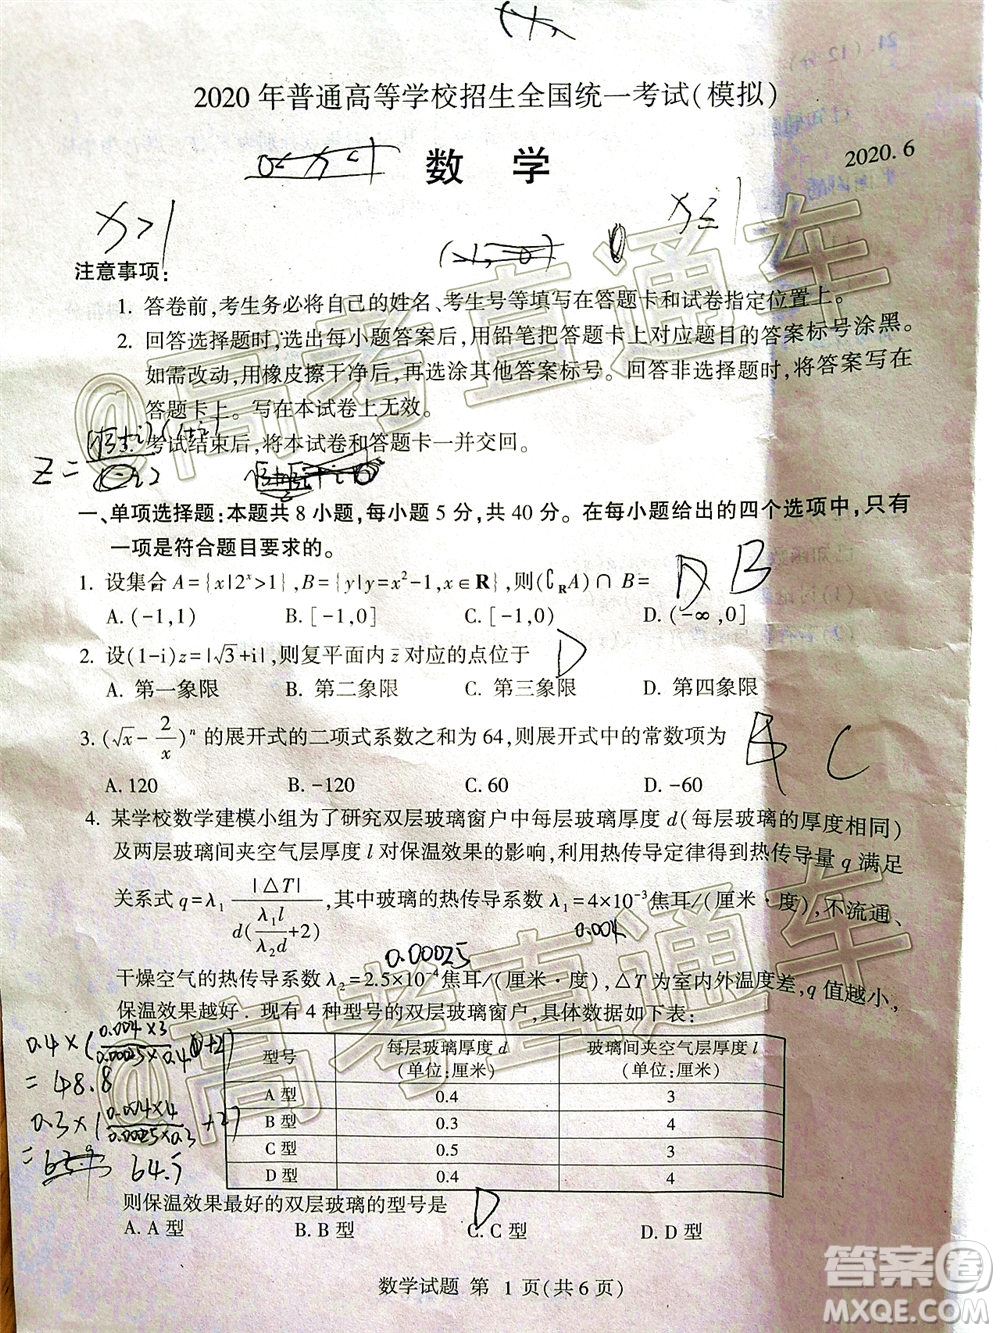 2020年普通高等学校招生全国统一考试(模拟)
数 学
2020.6
x>1
x≥1
注意事项:
1. 答卷前,考生务必将自己的姓名、考生号等填写在答题卡和试卷指定位置上。
2. 回答选择题时,选出每小题答案后,用铅笔把答题卡上对应题目的答案标号涂黑。
如需改动,用橡皮擦干净后,再选涂其他答案标号。回答非选择题时,将答案写在
答题卡上。写在本试卷上无效。
考试结束后,将本试卷和答题卡一并交回。
一、单项选择题:本题共8小题,每小题5分,共40分。在每小题给出的四个选项中,只有
一项是符合题目要求的。
1. 设集合A={x|2^x>1},B={y|y=x²-1,x∈R},则(∁_R A)∩B= B
A. (-1,1) B. [-1,0] C. [-1,0) D. (-∞,0]
2. 设(1-i)z=|√3+i|,则复平面内z̄对应的点位于 D
A. 第一象限 B. 第二象限 C. 第三象限 D. 第四象限
3. (√x-2/x)^n的展开式的二项式系数之和为64,则展开式中的常数项为 C
A. 120 B. -120 C. 60 D. -60
4. 某学校数学建模小组为了研究双层玻璃窗户中每层玻璃厚度d(每层玻璃的厚度相同)
及两层玻璃间夹空气层厚度l对保温效果的影响,利用热传导定律得到热传导量q满足
关系式q=λ₁|△T|/(d(λ₁l/(λ₂d)+2)),其中玻璃的热传导系数λ₁=4×10⁻³焦耳/(厘米·度),不流通、
0.00025 0.004
干燥空气的热传导系数λ₂=2.5×10⁻⁴焦耳/(厘米·度),△T为室内外温度差,q值越小,
保温效果越好.现有4种型号的双层玻璃窗户,具体数据如下表:
型号 每层玻璃厚度d(单位:厘米) 玻璃间夹空气层厚度l(单位:厘米)
A型 0.4 3
B型 0.3 4
C型 0.5 3
D型 0.4 4
= 48.8
64.5
则保温效果最好的双层玻璃的型号是 D
A. A型 B. B型 C. C型 D. D型
数学试题 第 1 页(共6页)
@高考直通车
@高考直通车
答案圈
MXQE.COM